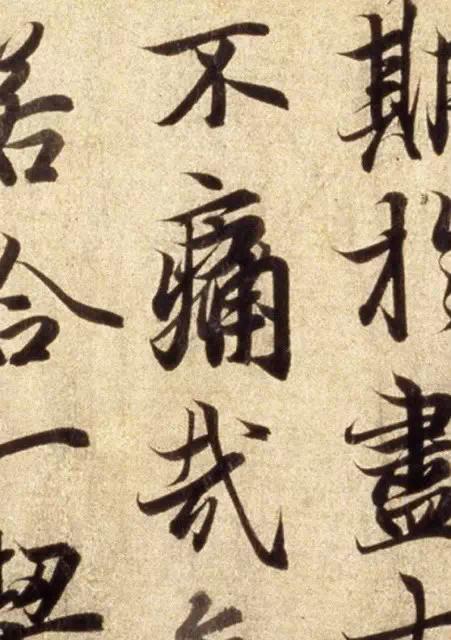 期於盡
不痛哉
若合一契